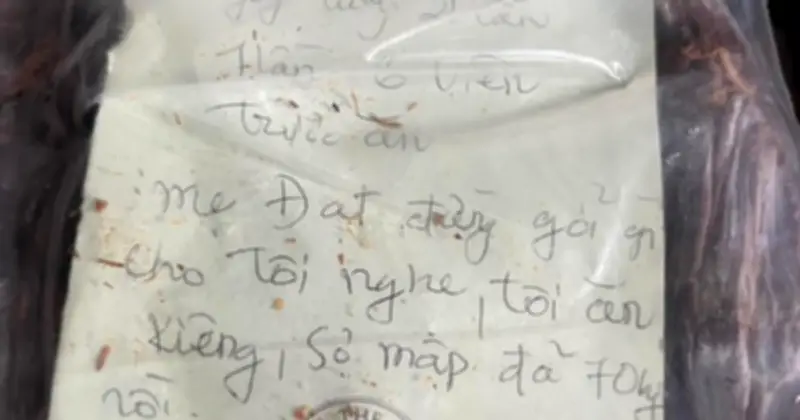 lần
7lần 6 viên
trước ăn
mẹ Đạt đừng gởi gì
cho tôi nghe, tôi ăn
kiêng, sợ mập đã 70kg
rồi.
THE